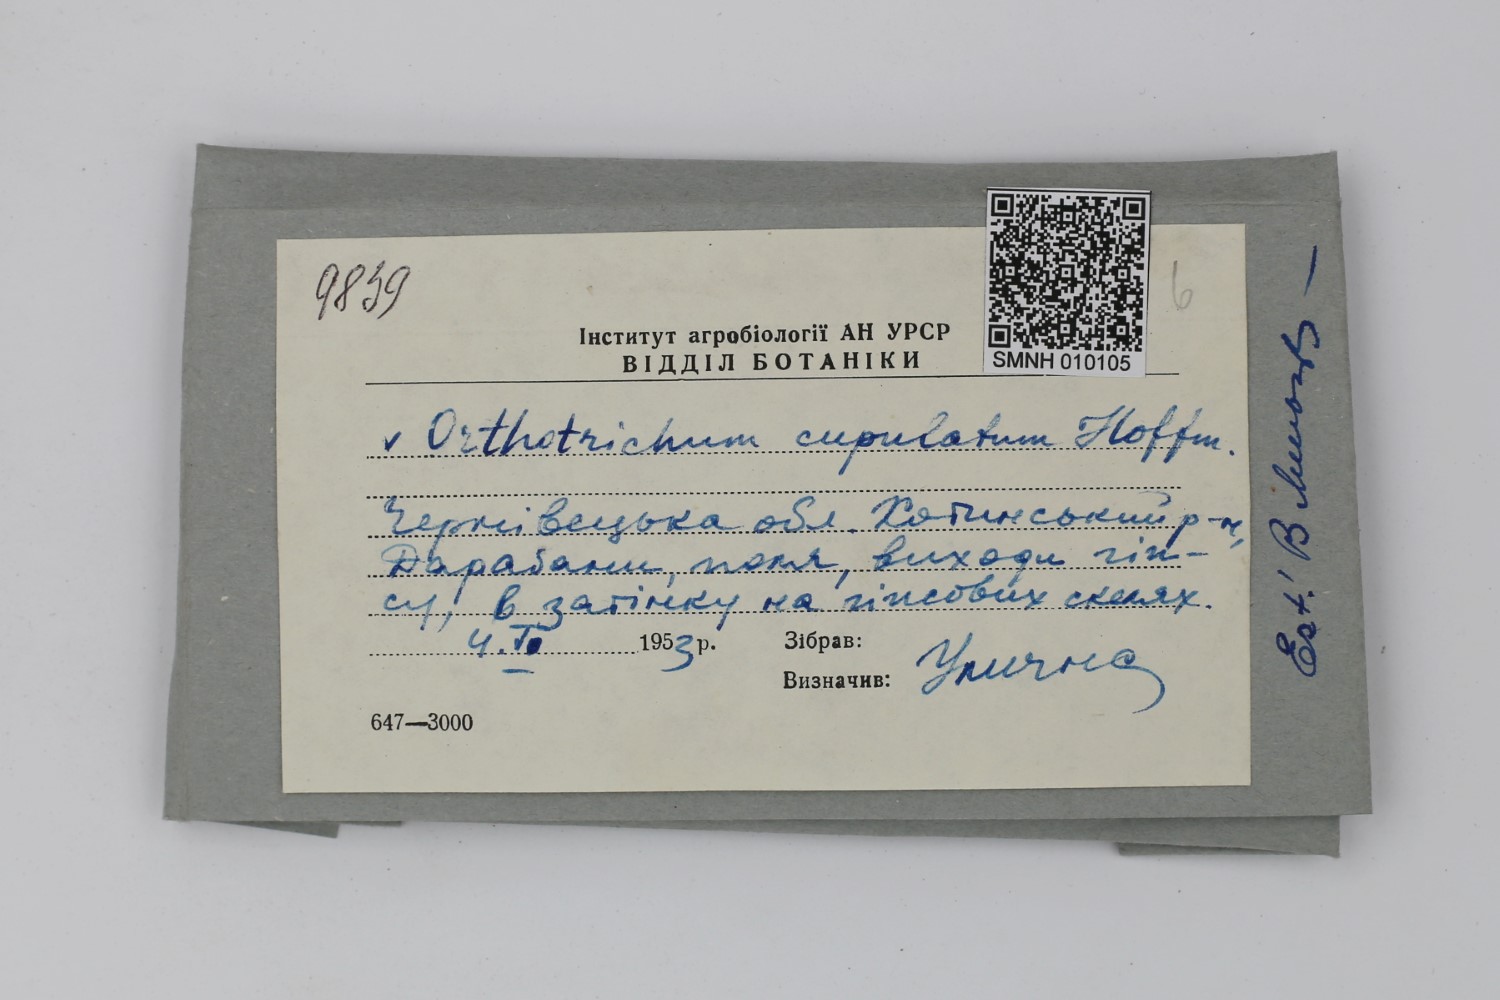 9839
6
Інститут агробіології АН УРСР
ВІДДІЛ БОТАНІКИ
SMNH 010105
v Orthotrichum cupulatum Hoffm.
Чернівецька обл. Хотинський р-н,
Дарабани, поля, виходи гіп-
су, в затінку на гіпсових скелях.
4. 1953 р.
Зібрав:
Визначив: Улична
647—3000
Est! В